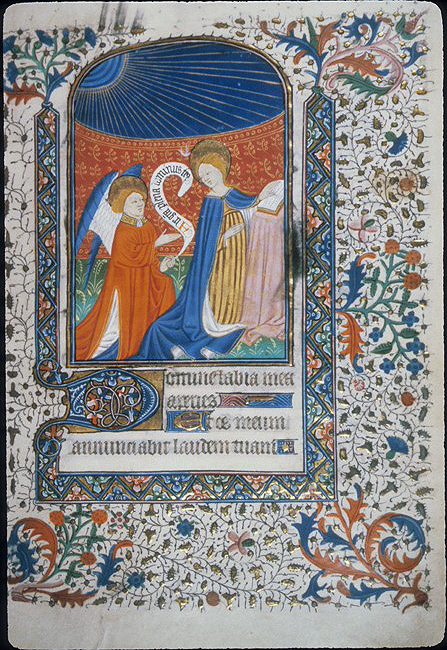 plena dominus
Domine labia mea
aperies
Et os meum
annunciabit laudem tuam